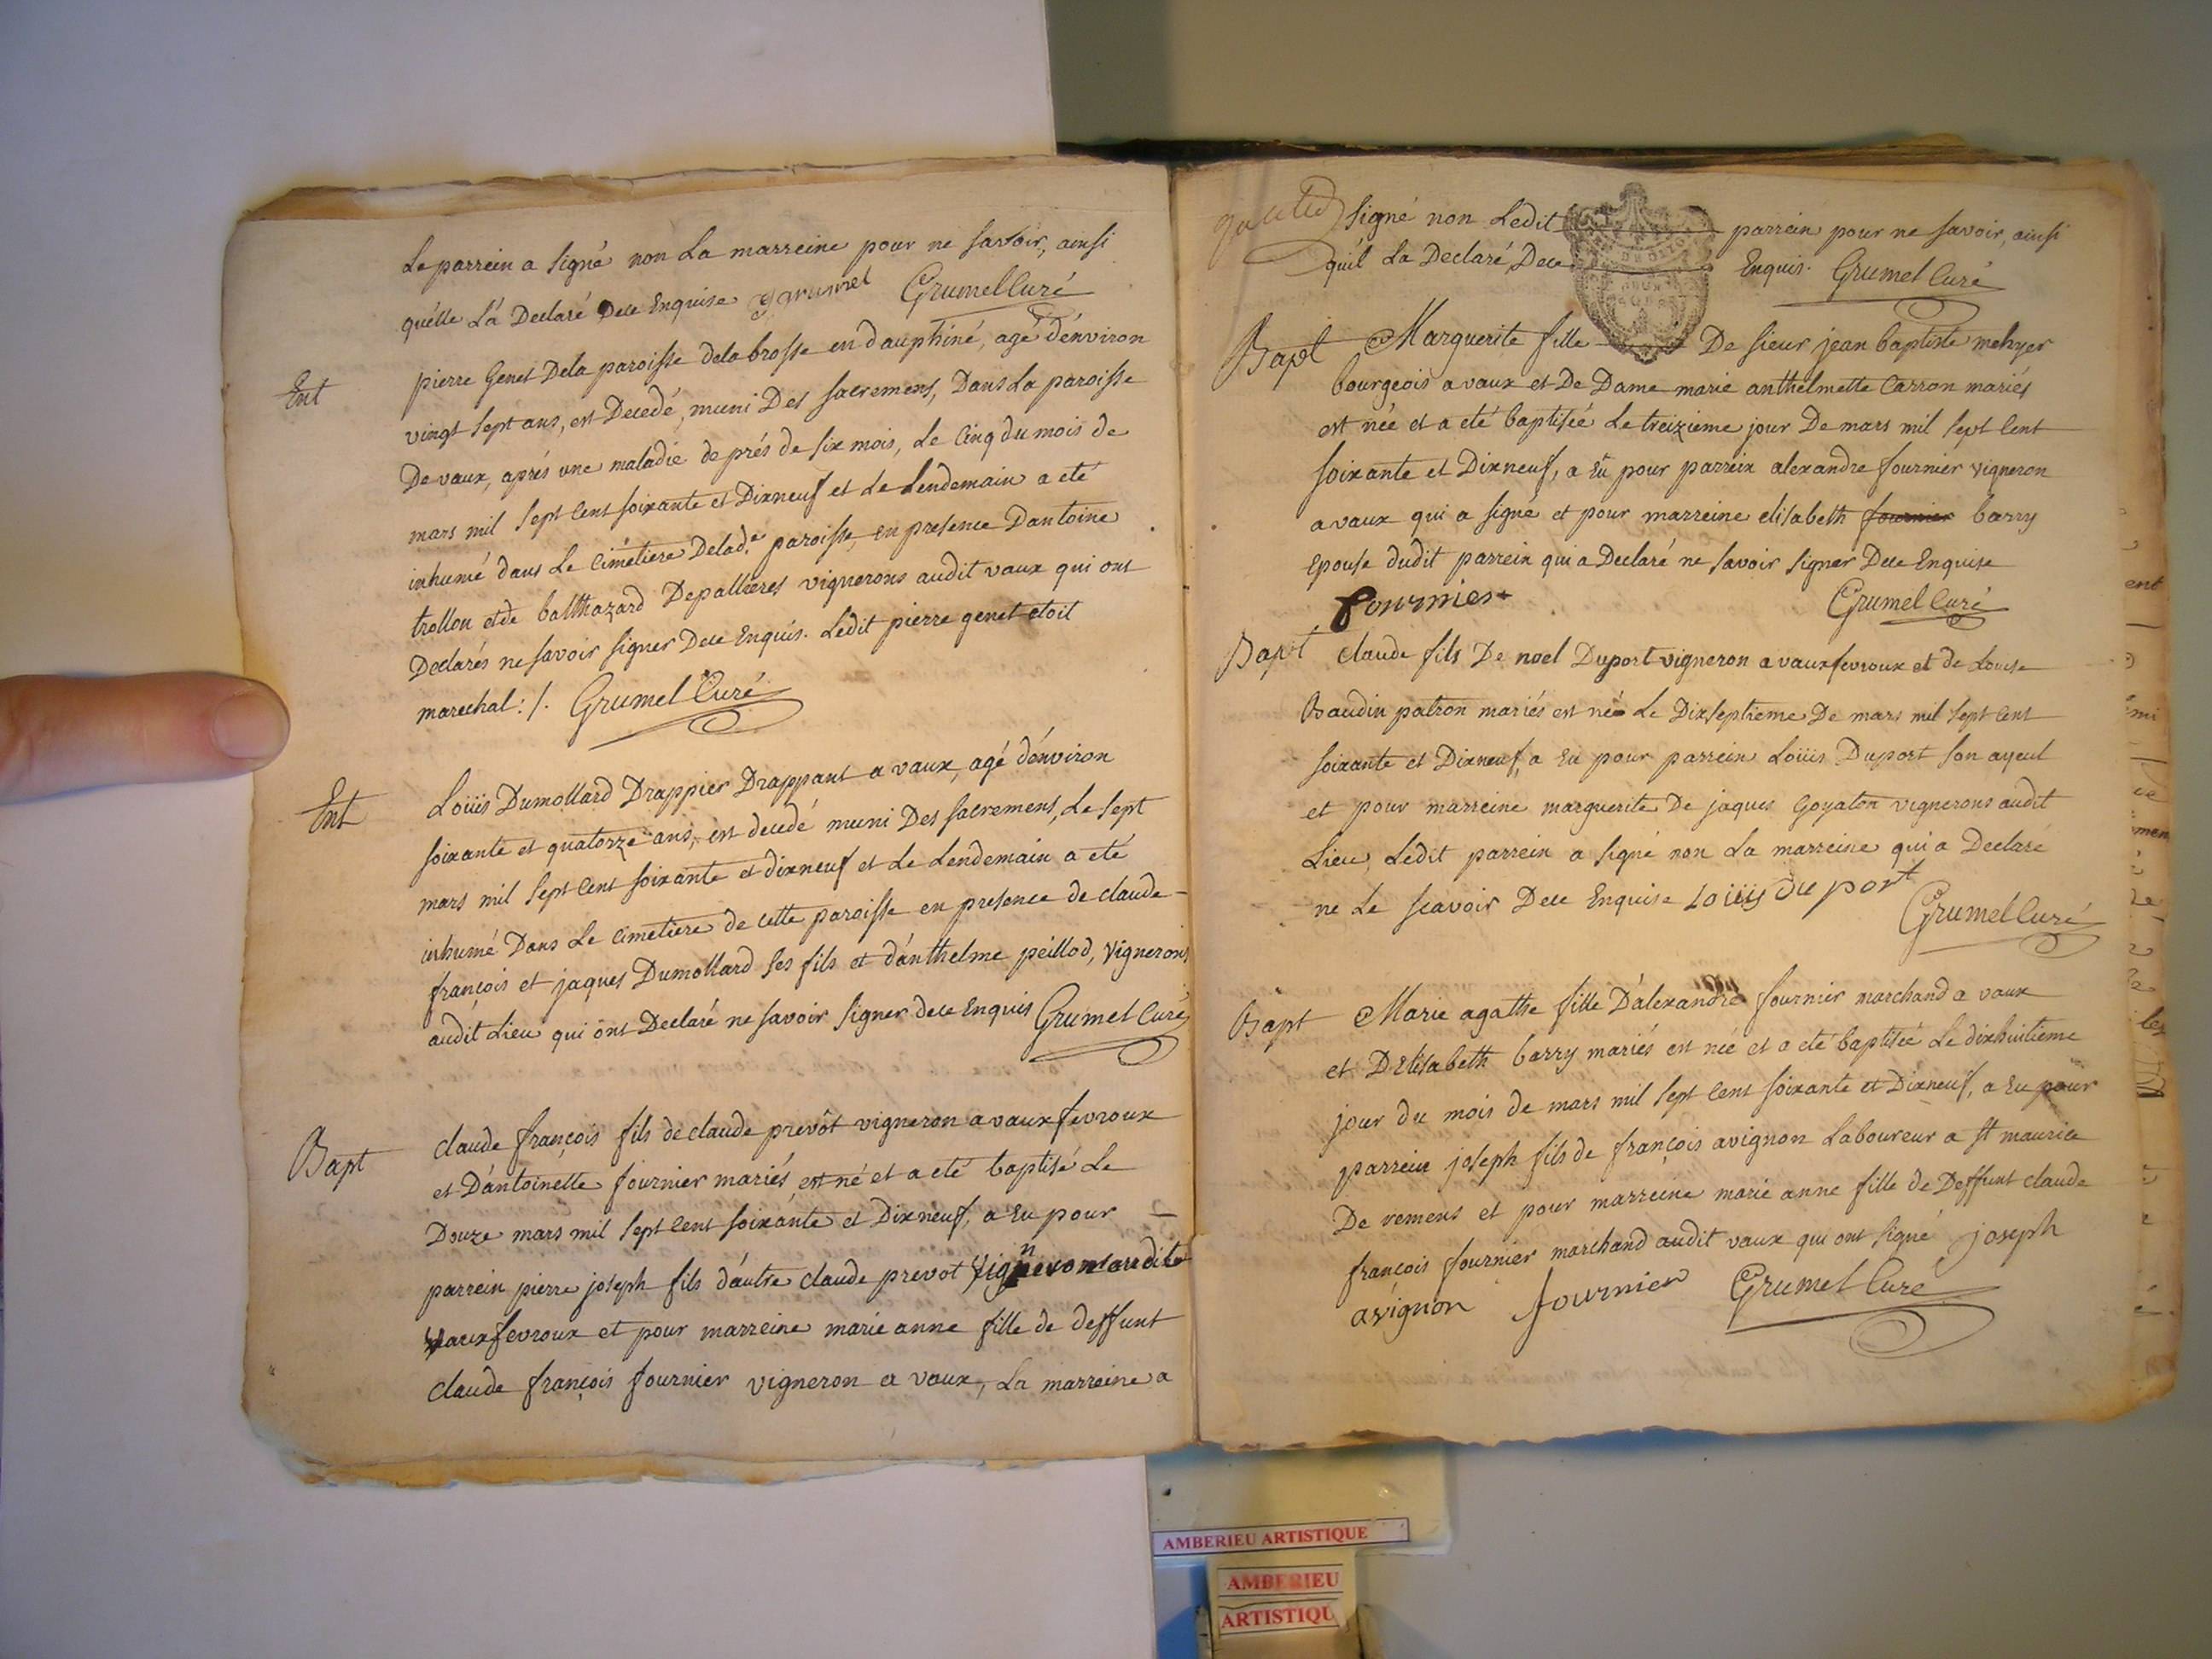 Le parrein a signé non La marreine pour ne savoir, ainsi
quélle L'a Declaré Dece Enquise Grumel Grumel Curé
Ent
pierre Genet Dela paroisse dela brosse en dauphiné, agé d'énviron
vingt sept ans, est Decedé, muni Des sacremens, Dans La paroisse
De vaux, aprés une maladie de prés de six mois, Le Cinq du mois de
mars mil sept Cent soixante et Dixneuf et Le Lendemain a eté
inhumé dans Le Cimetiere Delad.e paroisse, en presence Dantoine
trollon et de balthazard Depallieres vignerons audit vaux qui ont
Declarés ne savoir signer Dece Enquis. Ledit pierre genet etoit
marechal :/. Grumel Curé
Ent
Loüis Dumollard Drappier Drappant a vaux, agé d'énviron
soixante et quatorze ans, est decedé muni Des sacremens, Le sept
mars mil sept Cent soixante et dixneuf et Le Lendemain a eté
inhumé Dans Le Cimetiere de cette paroisse en presence de claude
françois et jaques Dumollard ses fils et d'ánthelme peillod, vignerons
audit Lieu qui ont Declaré ne savoir signer dece Enquis Grumel Curé
Bapt
claude françois fils de claude prevôt vigneron a vaux fevroux
et D'antoinette fournier mariés est né et a eté baptisé Le
Douze mars mil sept Cent soixante et Dixneuf, a Eu pour
parrein pierre joseph fils d'áutre claude prevot vigneron audit
vaux fevroux et pour marreine marie anne fille de deffunt
claude françois fournier vigneron a vaux, La marreine a
signé non Ledit parrein pour ne savoir, ainsi
qu'il La Declaré, Dece Enquis. Grumel Curé
Bapt
Marguerite fille De sieur jean baptiste mehyer
bourgeois a vaux et De Dame marie anthelmette Carron mariés
est née et a eté baptisée Le treizieme jour De mars mil sept Cent
soixante et Dixneuf, a Eu pour parrein alexandre fournier vigneron
a vaux qui a signé et pour marreine elisabeth fournier barry
Epouse dudit parrein qui a Declaré ne savoir signer Dece Enquise
fournier Grumel Curé
Bapt
claude fils De noel Duport vigneron a vaux fevroux et de Louise
Baudin patron mariés est né Le Dixseptieme De mars mil sept Cent
soixante et Dixneuf, a Eu pour parrein Loüis Duport son ayeul
et pour marreine marguerite De jaques Goyaton vignerons audit
Lieu, Ledit parrein a signé non La marreine qui a Declaré
ne Le scavoir Dece Enquise Loüis du port
Grumel Curé
Bapt
Marie agathe fille D'alexandre fournier marchand a vaux
et D'Elisabeth barry mariés est née et a eté baptisée Le dixhuitieme
jour du mois de mars mil sept Cent soixante et Dixneuf, a Eu pour
parrein joseph fils de françois avignon Laboureur a st maurice
De remens et pour marreine marie anne fille de Deffunt claude
françois fournier marchand audit vaux qui ont signé joseph
avignon fournier Grumel Curé
AMBERIEU ARTISTIQUE
AMBERIEU
ARTISTIQU